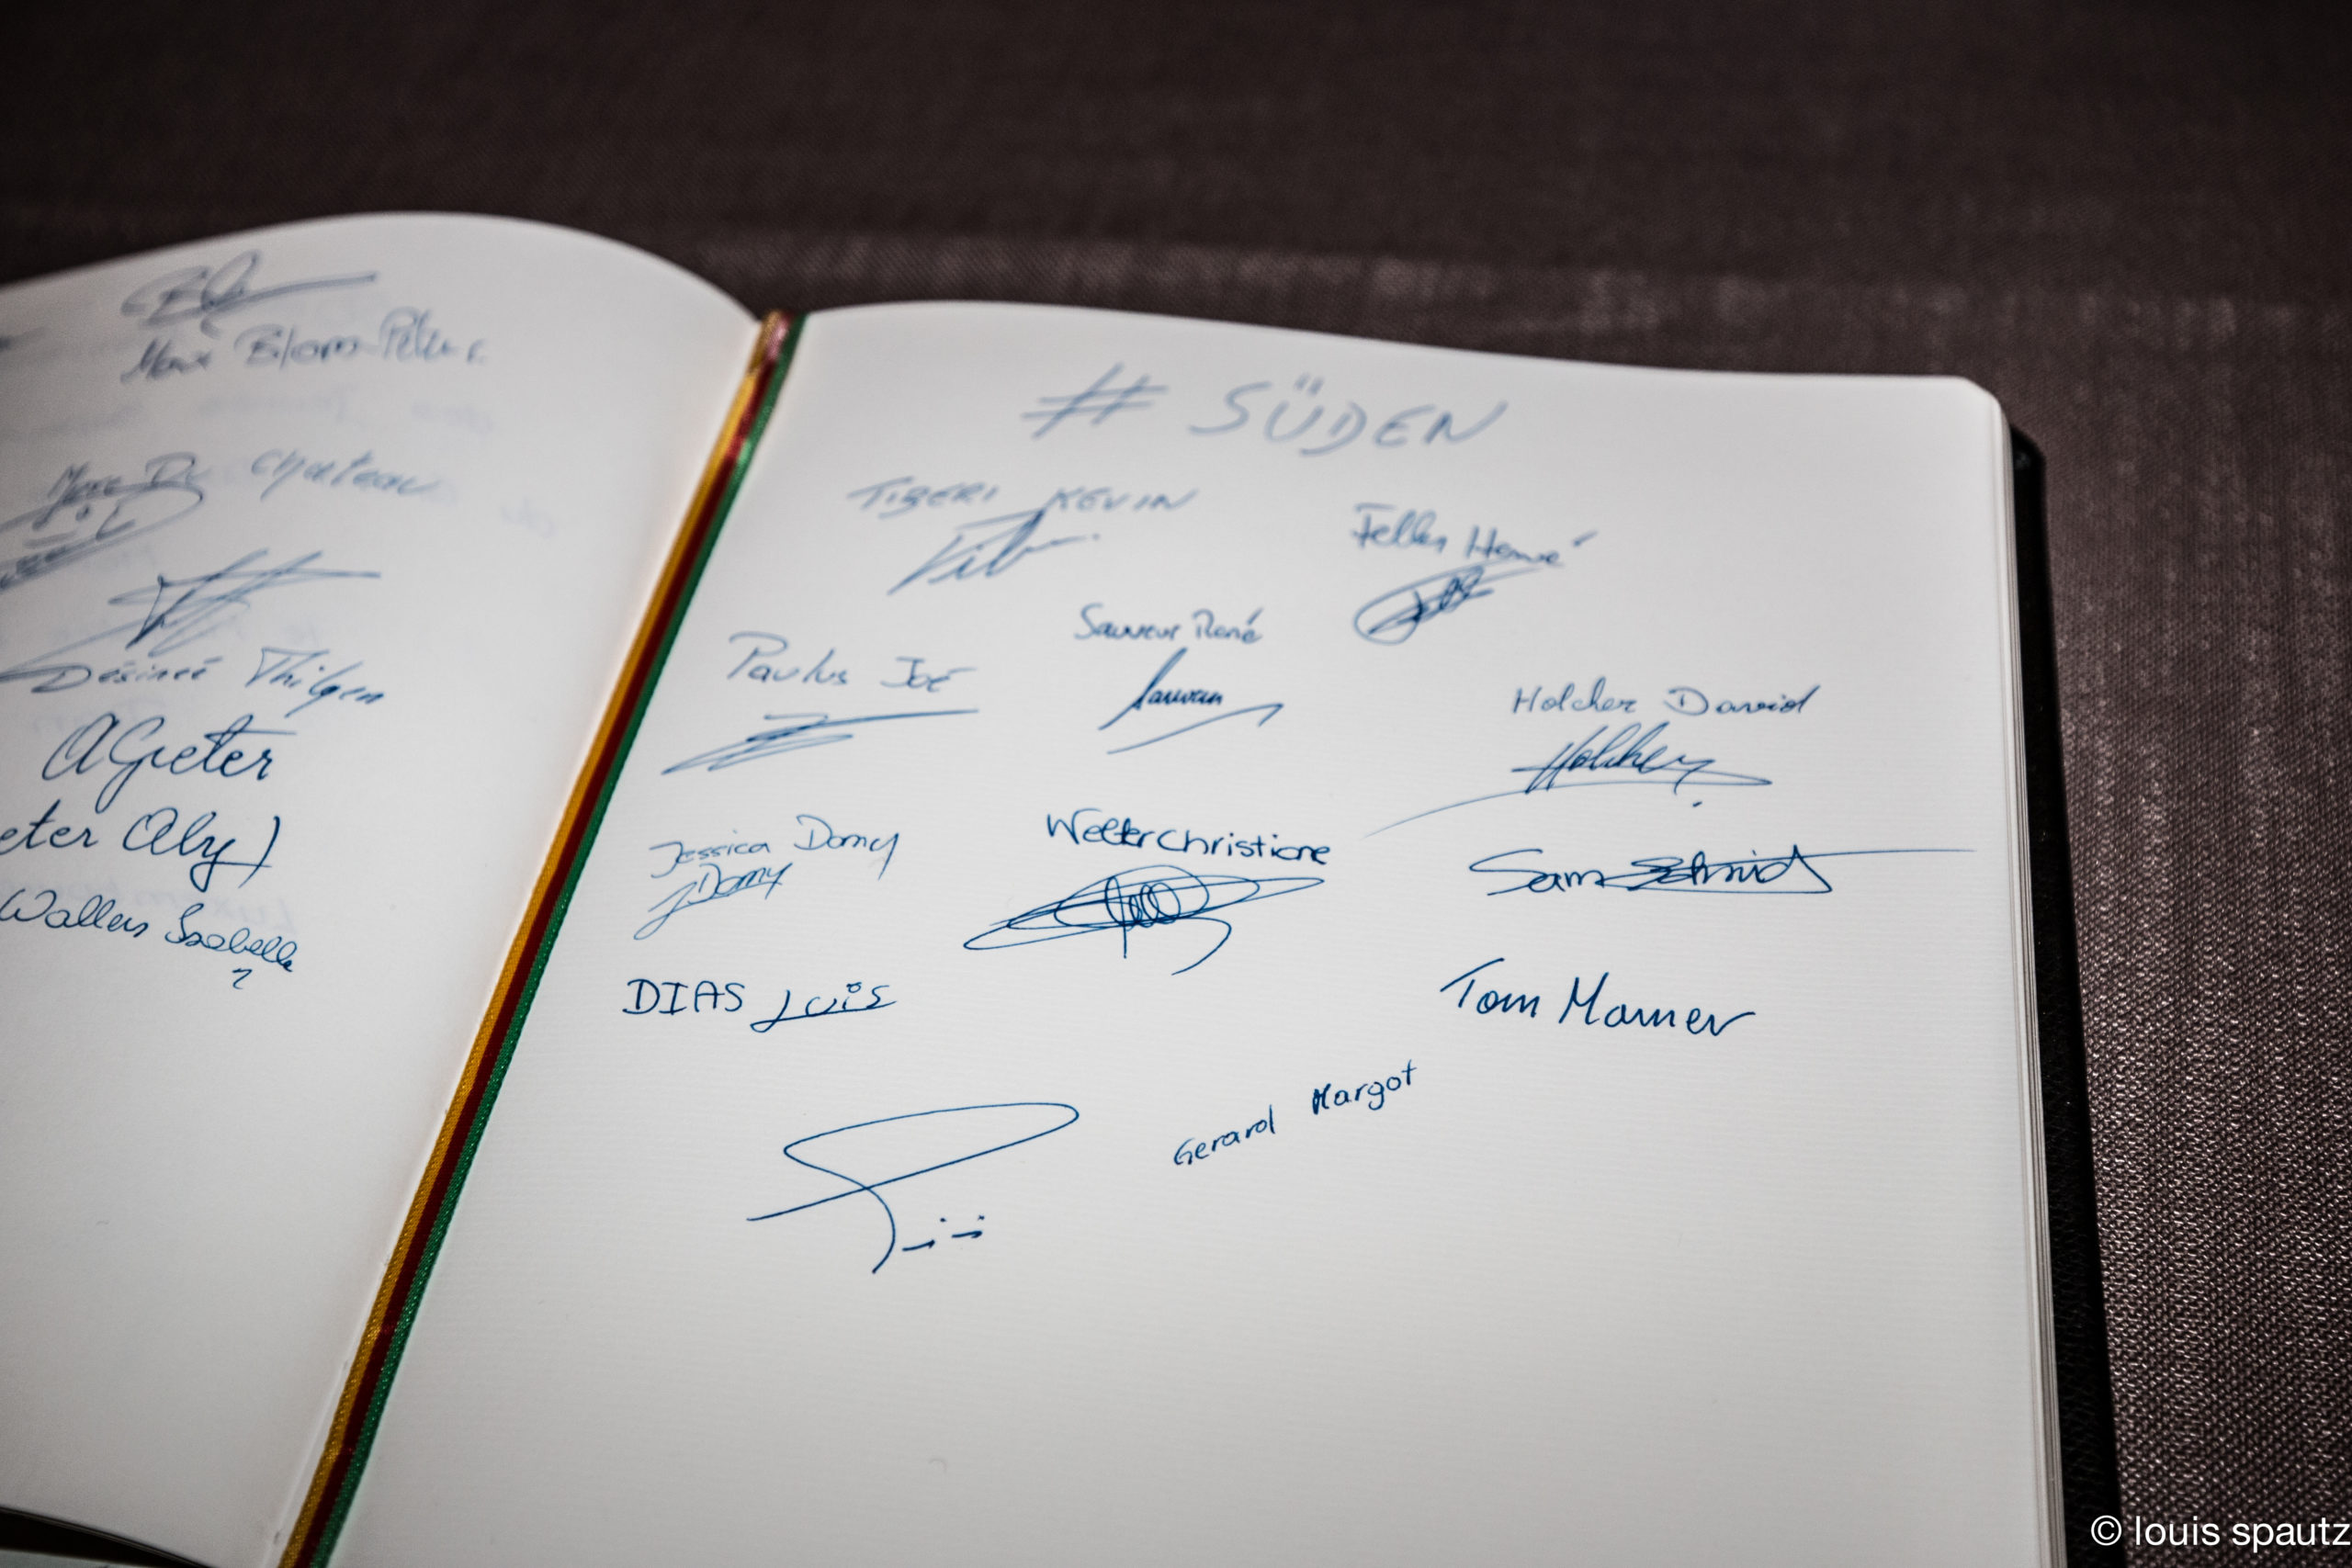 Marc Du Chateau
Désireé Thilgen
AGreter
eter Aly)
Wallers Isabelle
# SÜDEN
TIBERI KEVIN
Felten Hervé
Sauveur René
Paulus Joé
Holcher David
Holcher
Jessica Domy
JDomy
Welter Christiane
Sam Schmid
DIAS Luis
Tom Marner
Gerard Margot
© louis spautz